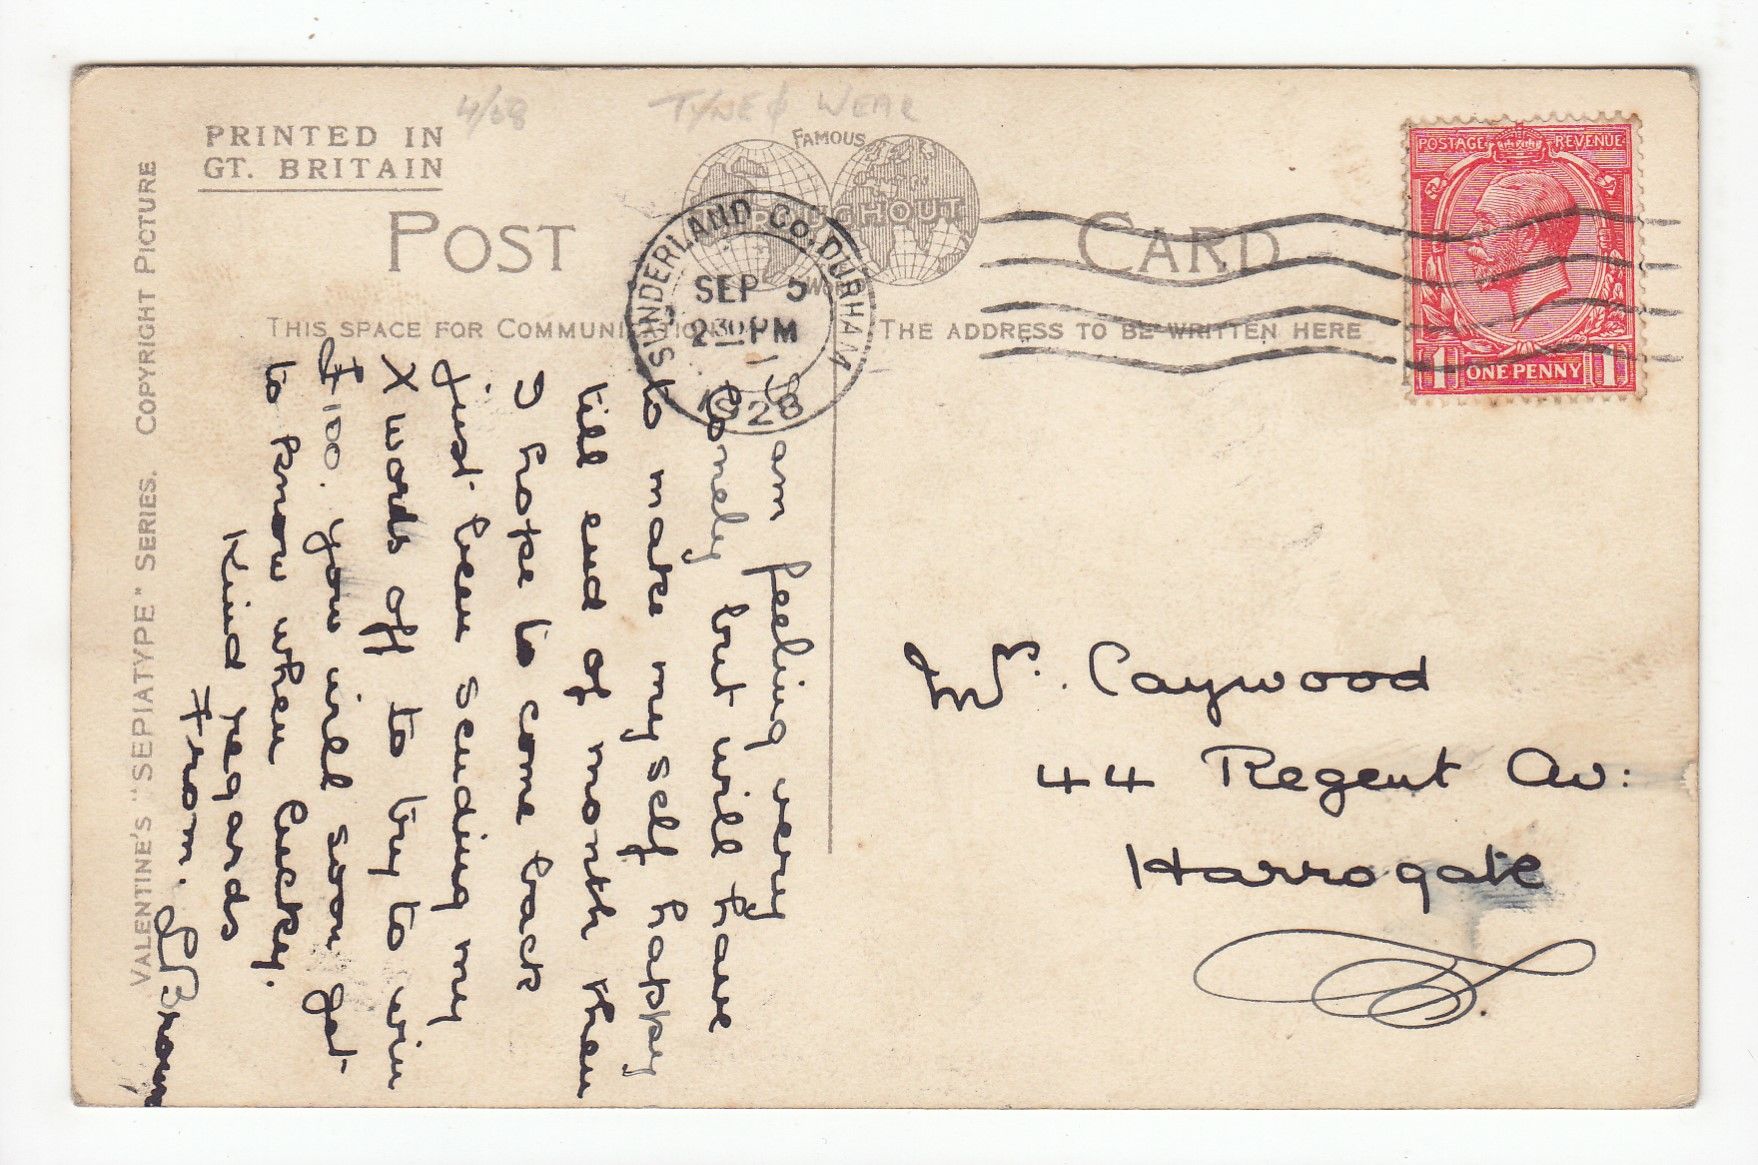 4/68
TYNE & WEAR
PRINTED IN
GT. BRITAIN
FAMOUS
THROUGHOUT
POST
CARD
SUNDERLAND CO. DURHAM
SEP 5
2 30 PM
1928
POSTAGE REVENUE
1 ONE PENNY 1
THIS SPACE FOR COMMUNICATION
THE ADDRESS TO BE WRITTEN HERE
VALENTINE'S "SEPIATYPE" SERIES. COPYRIGHT PICTURE
I am feeling very
lonely but will have
to make myself happy
till end of month then
I hope to come back
just been sending my
X words off to try to win
£100. you will soon get
to know when lucky.
Kind regards
From. L Brown
Mr. Caywood
44 Regent Av:
Harrogate